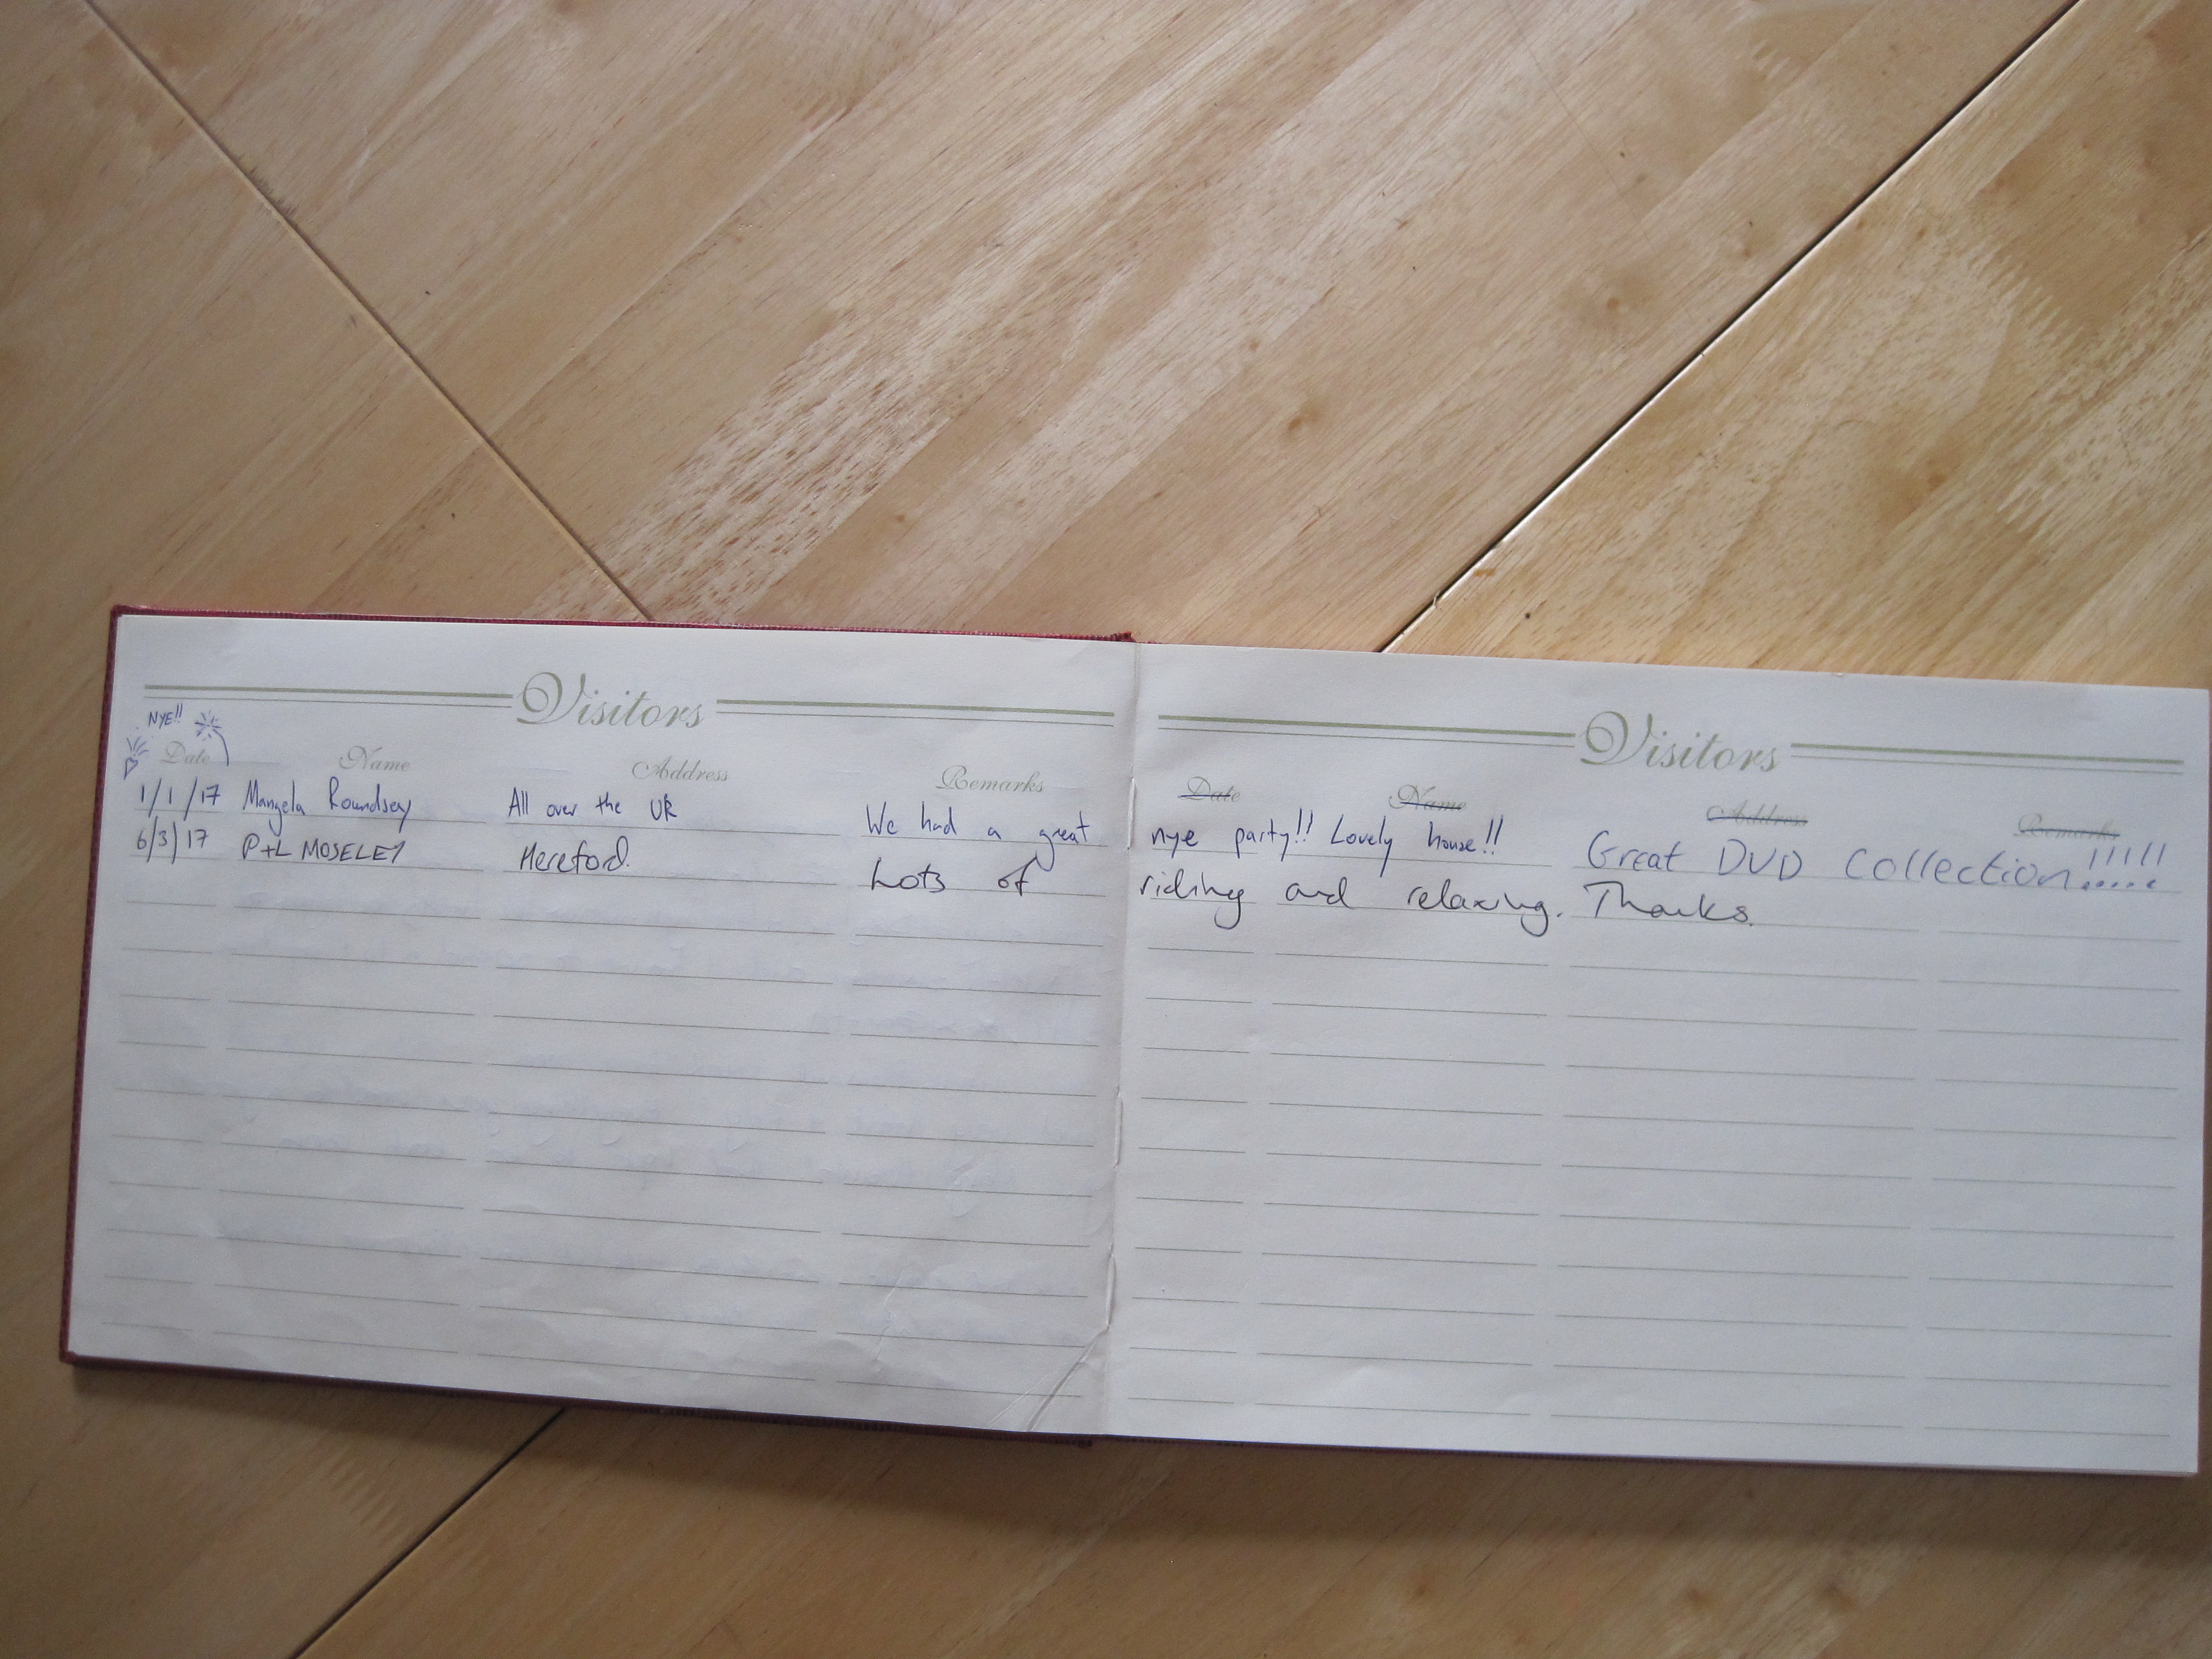 Visitors
NYE!!
Date Name Address Remarks
1/1/17 Mangela Roundsey All over the UK We had a great
6/3/17 P+L MOSELEY Hereford. Lots of
Visitors
Date Name Address Remarks
nye party!! Lovely house!! Great DVD Collection!!!!!
riding and relaxing. Thanks.